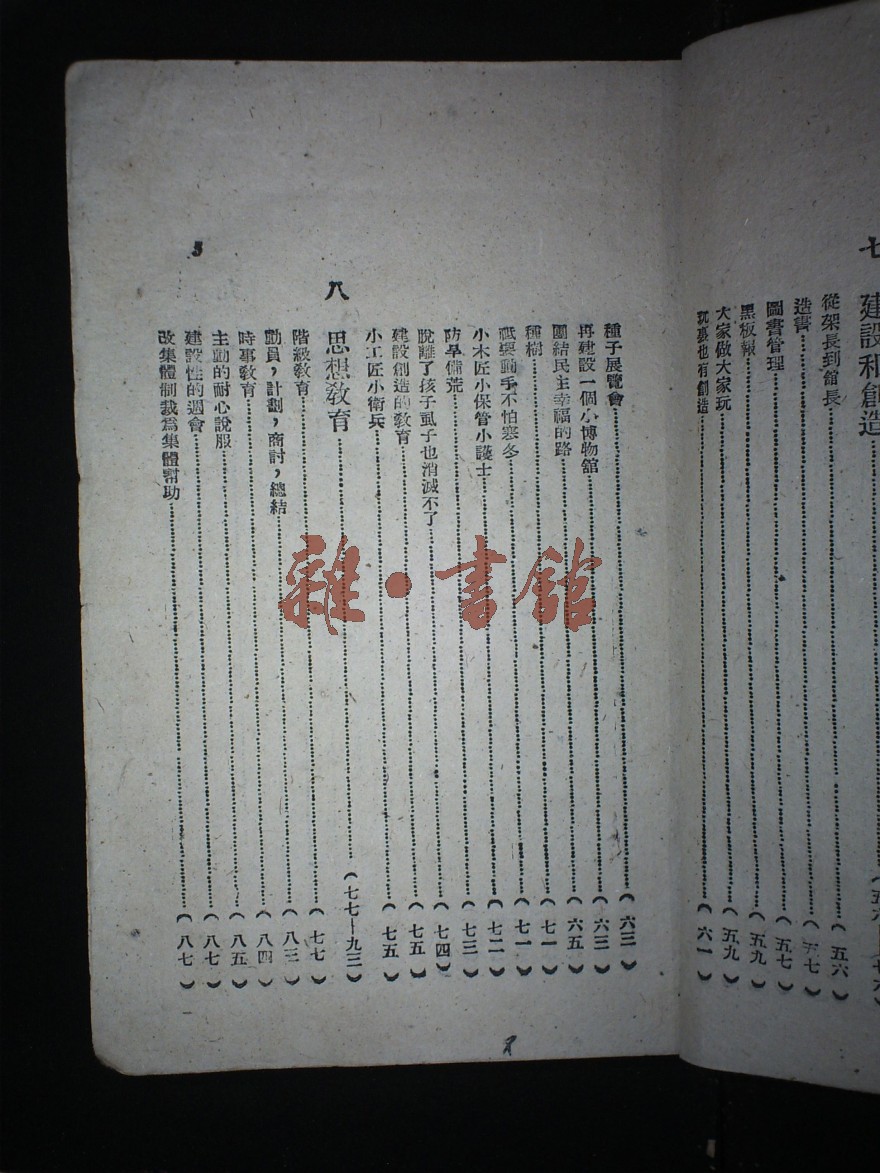 七　建設和創造
從架長到館長……（五六）
造書……（五七）
圖書管理……（五七）
黑板報……（五九）
大家做大家玩……（五九）
玩裏也有創造……（六一）
種子展覽會……（六三）
再建設一個小博物館……（六三）
團結民主幸福的路……（六五）
種樹……（七一）
祗要動手不怕寒冬……（七一）
小木匠小保管小護士……（七二）
防旱備荒……（七三）
脫離了孩子虱子也消滅不了……（七四）
建設創造的教育……（七五）
小工匠小衛兵……（七五）
八　思想教育……（七七—九三）
階級教育……（七七）
動員，計劃，商討，總結……（八三）
時事教育……（八四）
主動的耐心說服……（八五）
建設性的週會……（八七）
改集體制裁爲集體幫助……（八七）
5
雜·書館